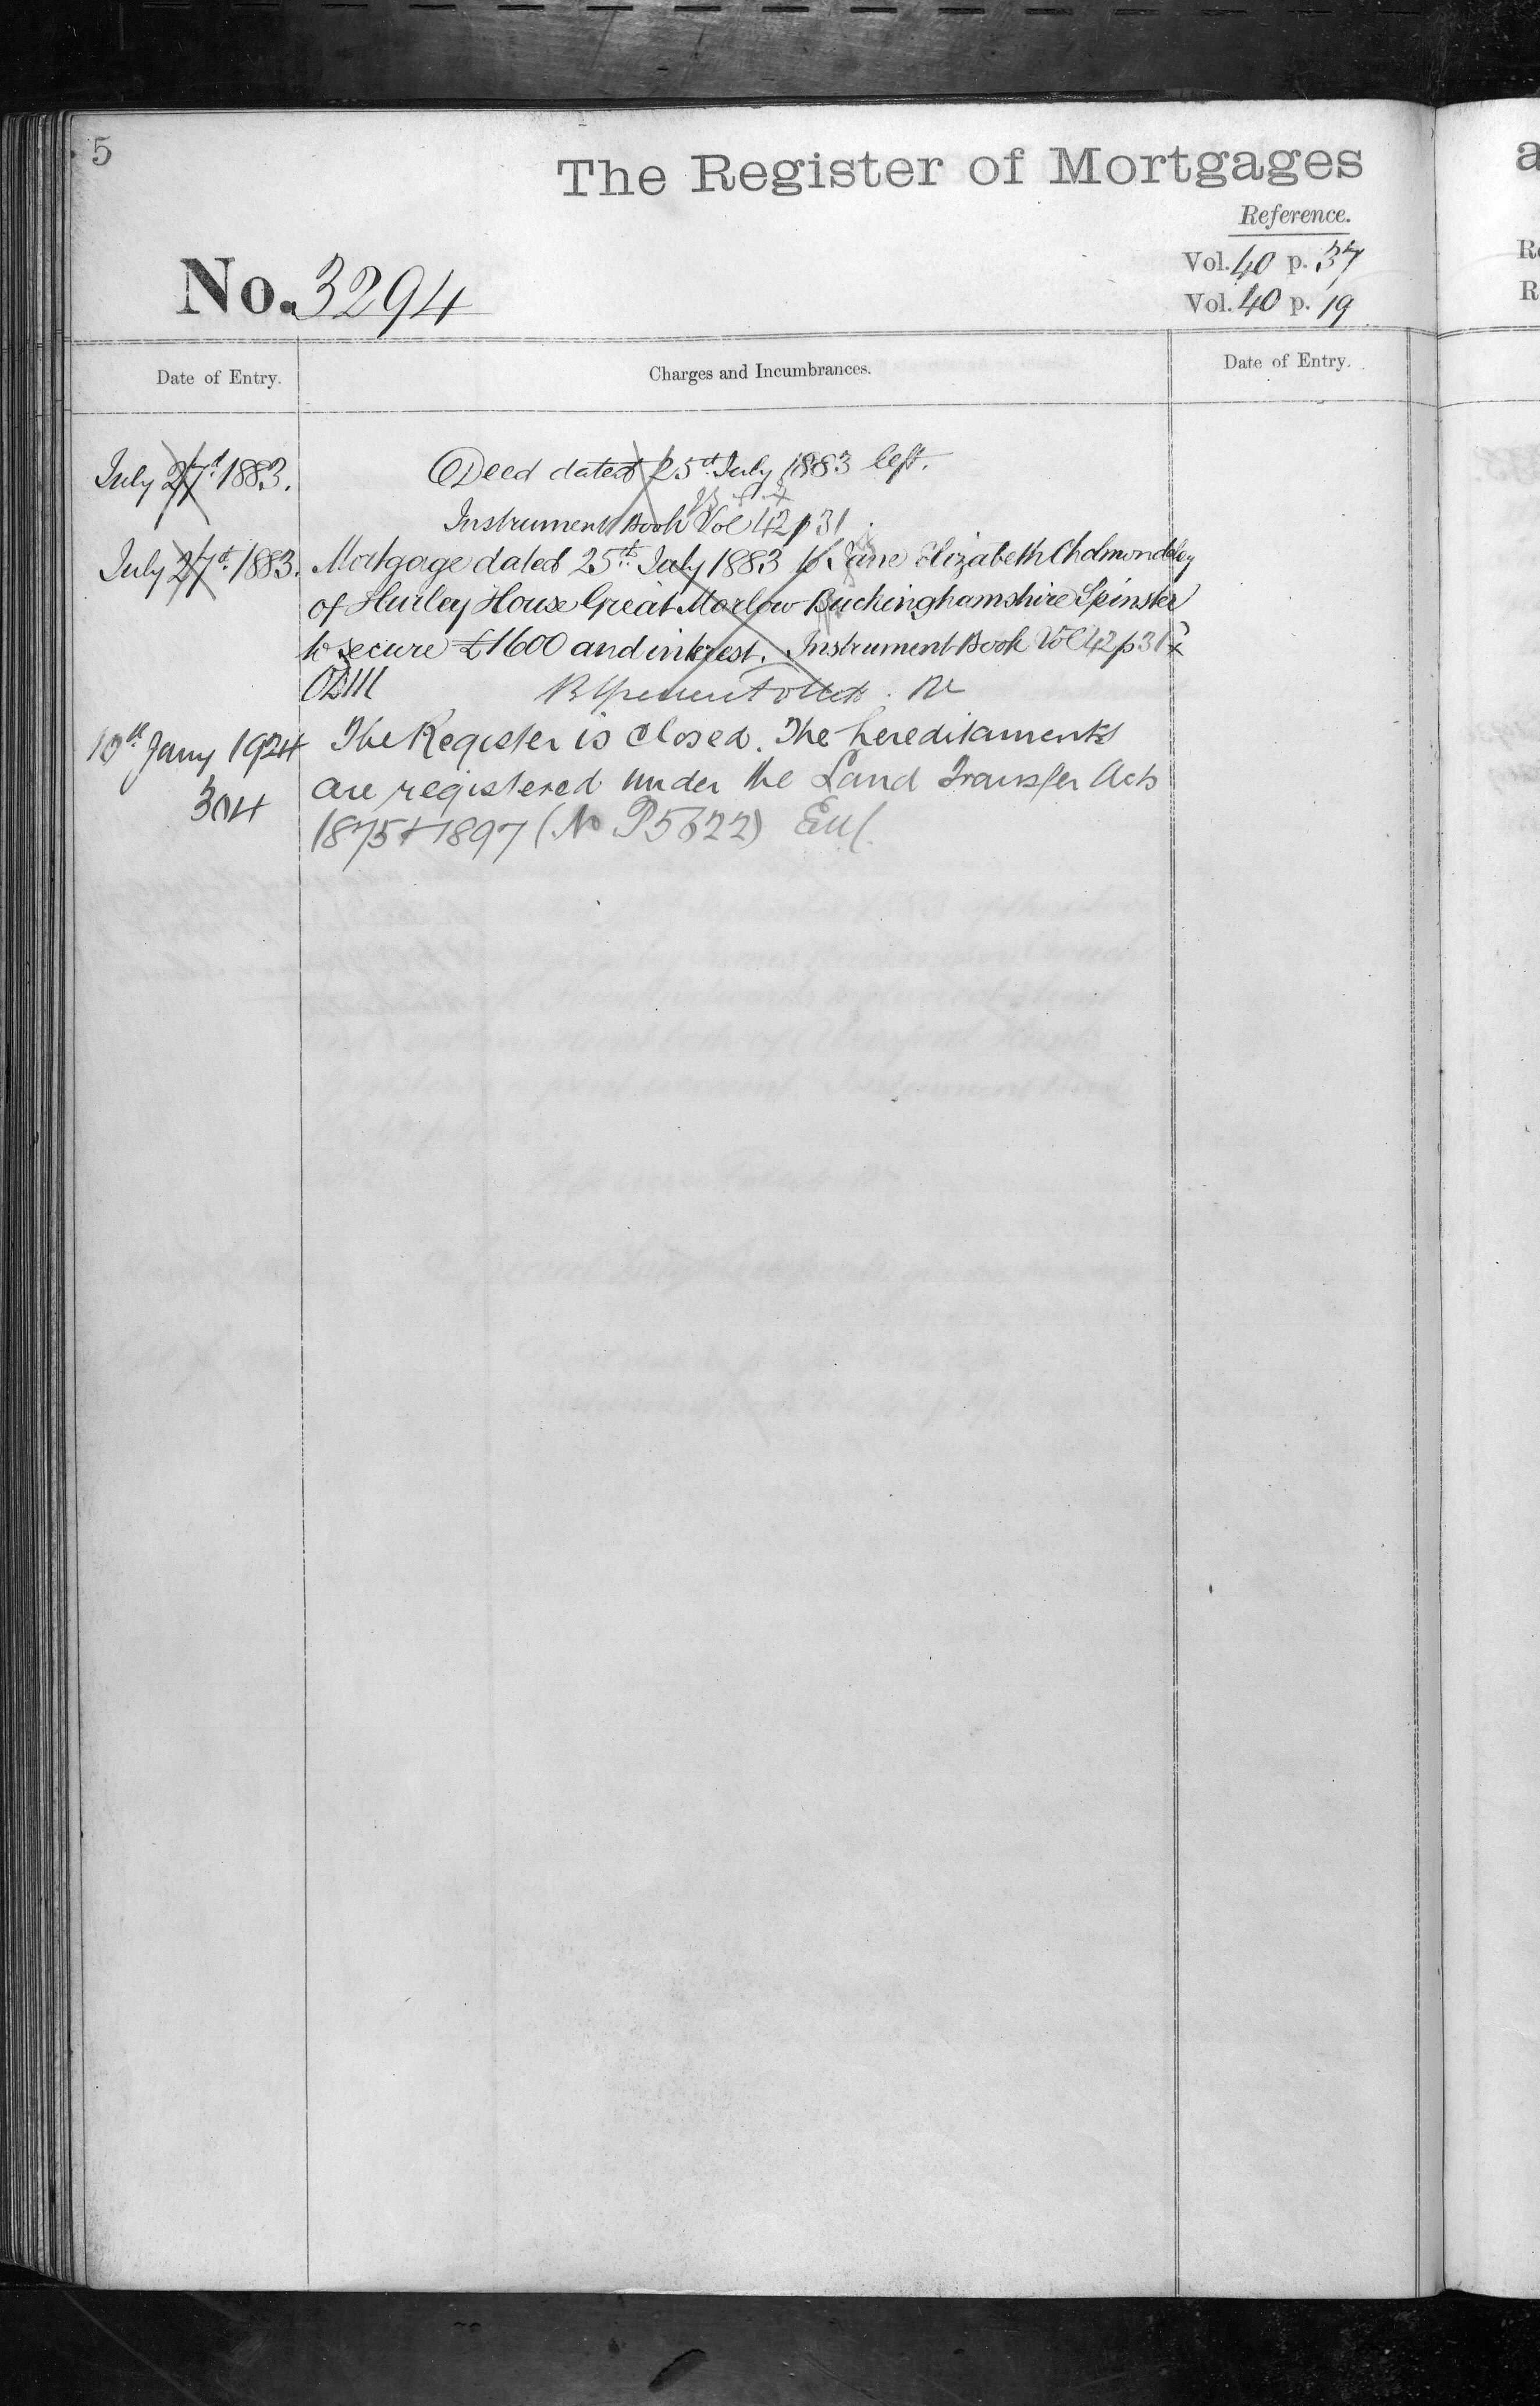 5
The Register of Mortgages
Reference.
No. 3294
Vol. 40 p. 37
Vol. 40 p. 19
Date of Entry.
Charges and Incumbrances.
Date of Entry.
July 27th 1883.
Deed dated 25th July 1883 left.
Instrument Book Vol 42 p 31.
July 27th 1883.
Mortgage dated 25th July 1883 to Jane Elizabeth Cholmondeley
of Hurley House Great Marlow Buckinghamshire Spinster
to secure £1600 and interest. Instrument Book Vol 42 p 31
10th Jany 1924
The Register is closed. The hereditaments
304
are registered under the Land Transfer Acts
1875 & 1897 (No P5622)